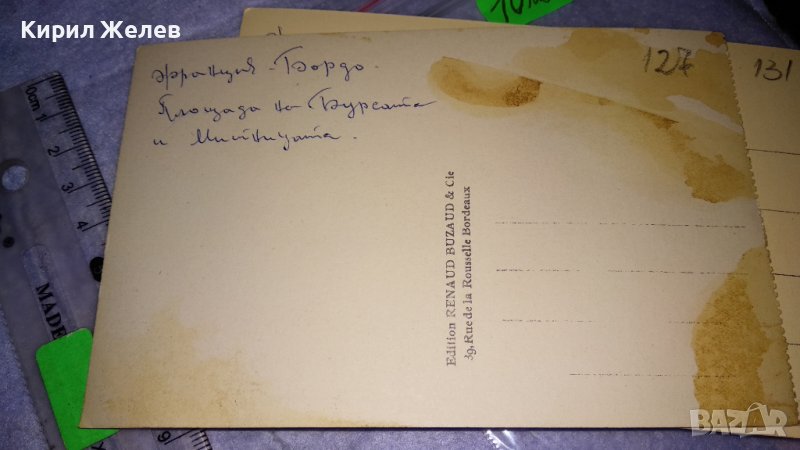 Кирил Желев
Франция - Бордо.
Площада на Бурсата
и Митницата.
127
131
Edition RENAUD BUZAUD & Cie
39, Rue de la Rousselle Bordeaux
0cm 1
2
3
4
MADE
9
10
BAZAR